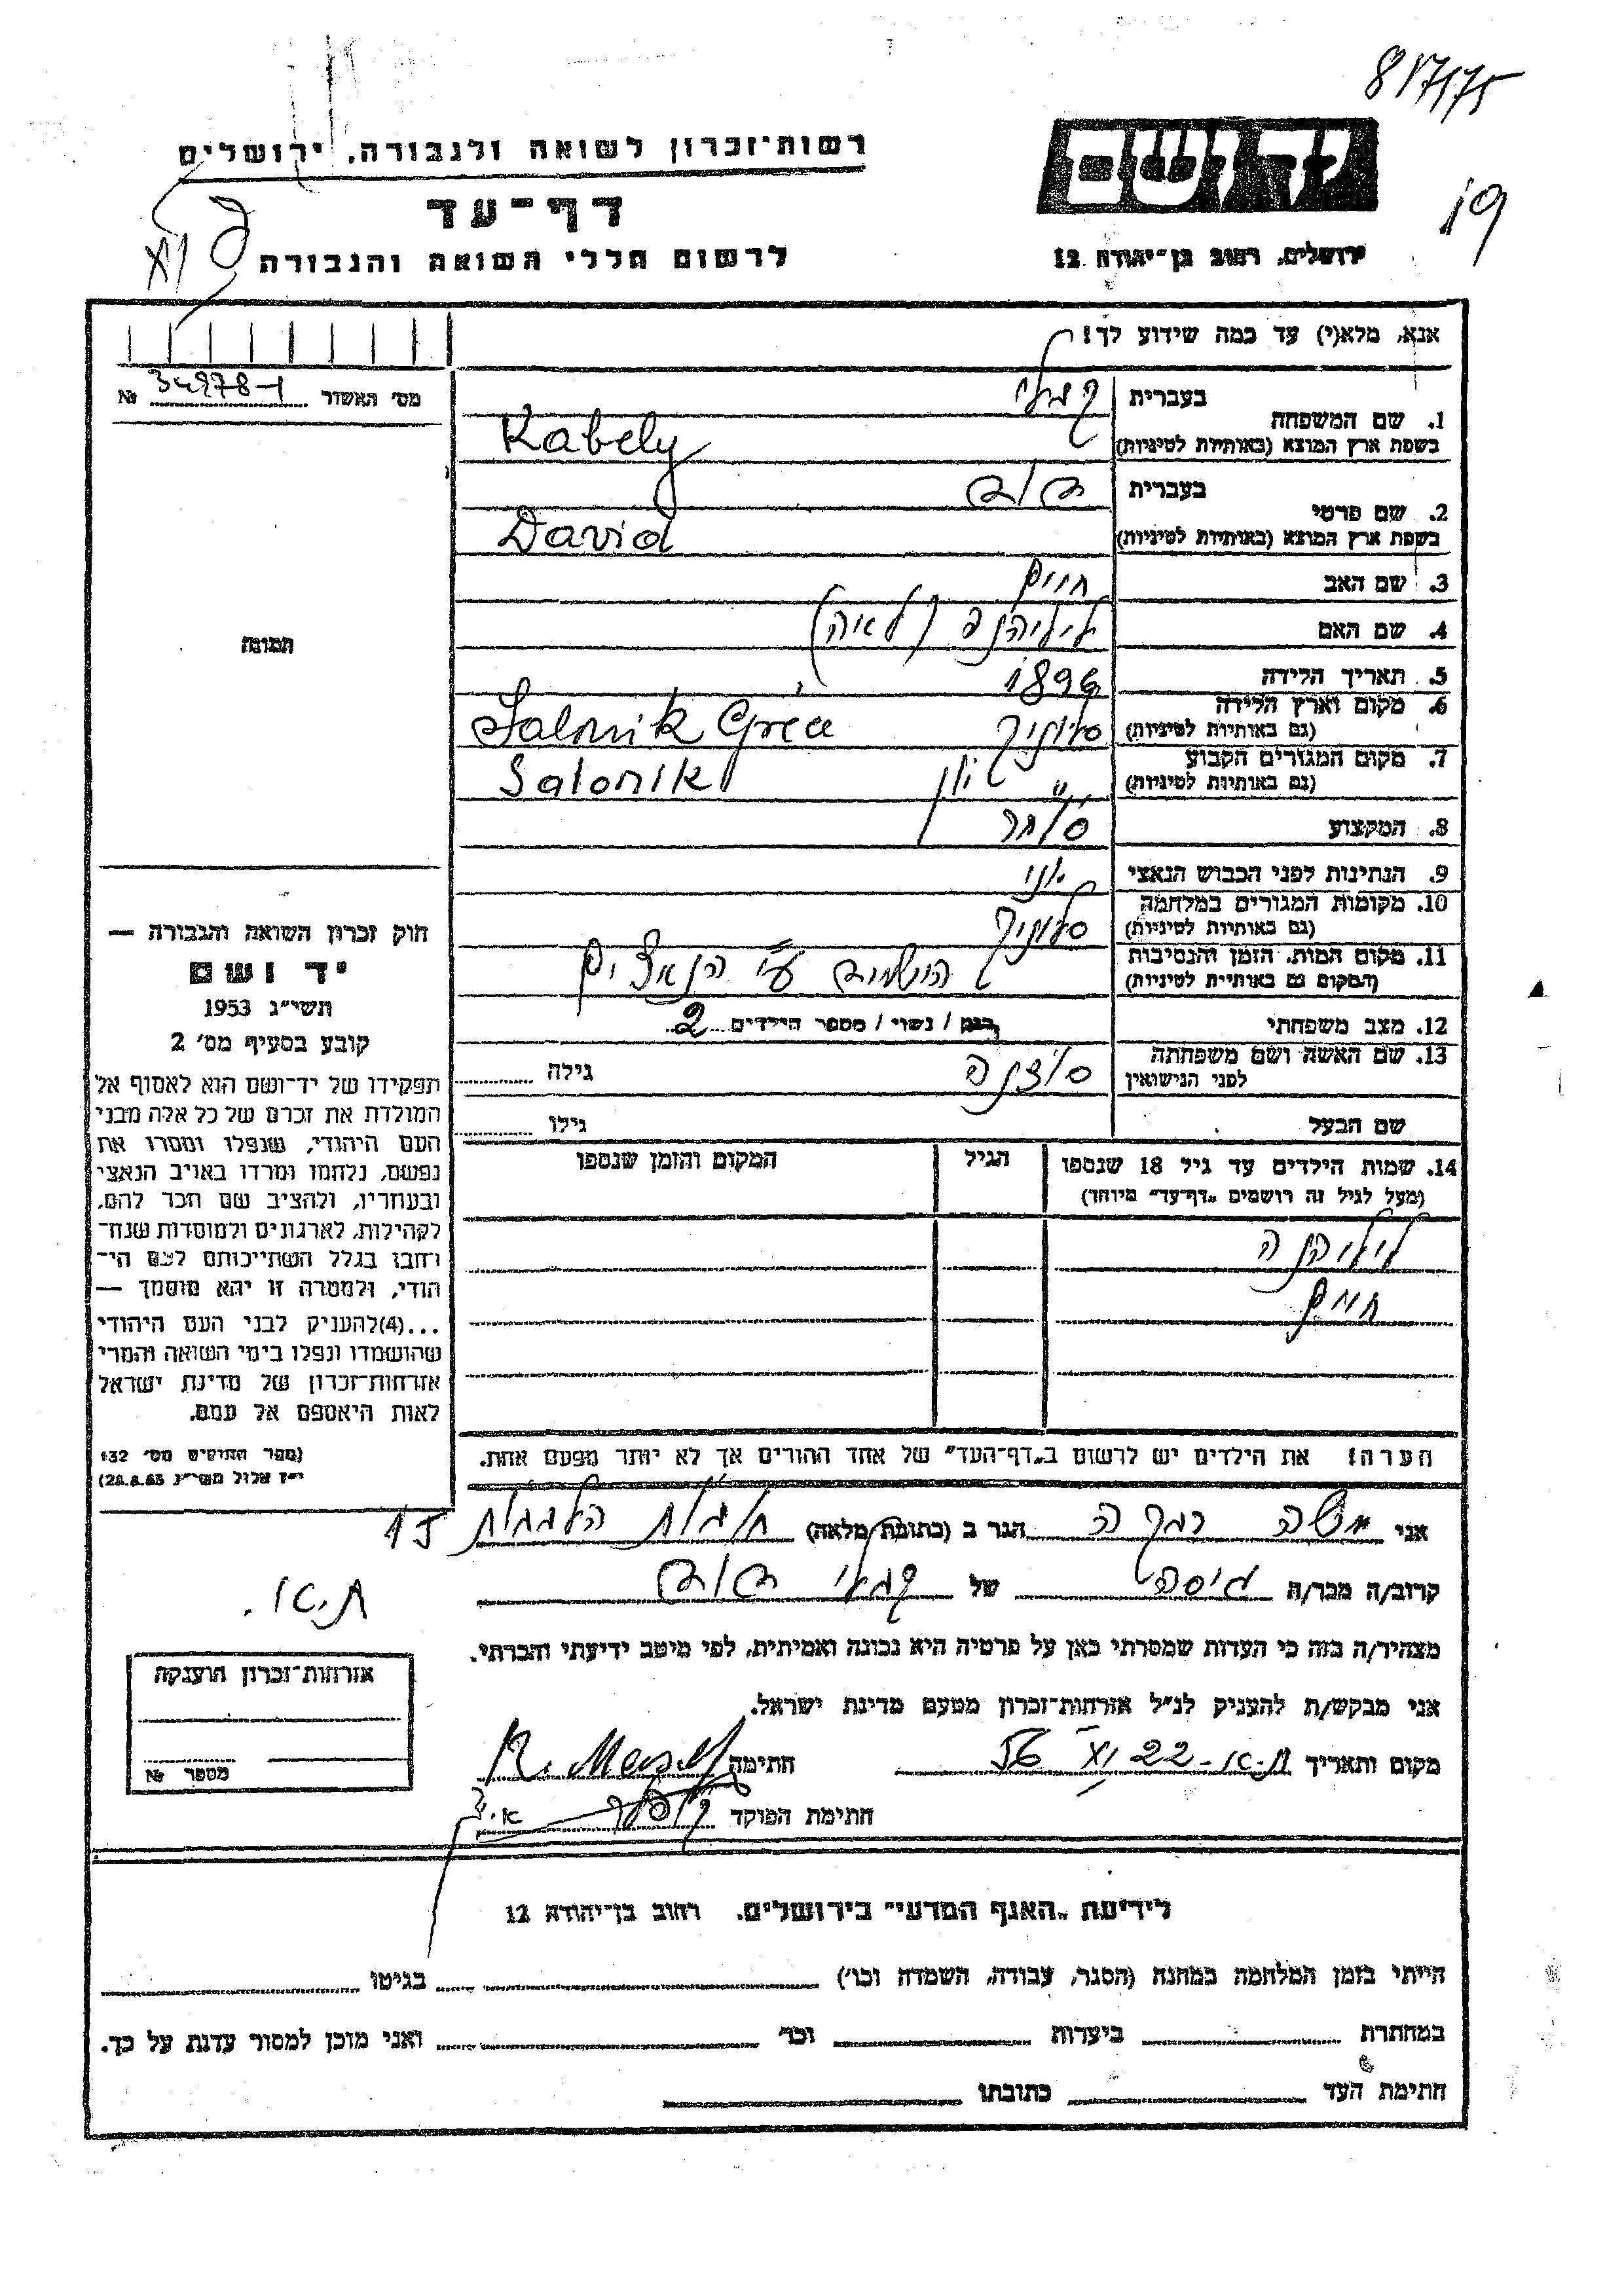 817175
19
יד ושם
ירושלים, רחוב בן־יהודה 12
רשות־זכרון לשואה ולגבורה, ירושלים
דף־עד
לרשום חללי השואה והגבורה
אנא, מלא(י) עד כמה שידוע לך!
מס' האשור № 34978-1
תמונה
1. שם המשפחה
בעברית קבלי
בשפת ארץ המוצא (באותיות לטיניות) Kabely
2. שם פרטי
בעברית דוד
בשפת ארץ המוצא (באותיות לטיניות) David
3. שם האב חיים
4. שם האם (לאה)
5. תאריך הלידה 1896
6. מקום וארץ הלידה (גם באותיות לטיניות) סלוניק Salonik Grèce
7. מקום המגורים הקבוע (גם באותיות לטיניות) " יון Salonik
8. המקצוע סוחר
9. הנתינות לפני הכבוש הנאצי יוני
10. מקומות המגורים במלחמה (גם באותיות לטיניות) סלוניק
11. מקום המות, הזמן והנסיבות (המקום גם באותיות לטיניות) הושמד ע"י הנאצים
12. מצב משפחתי רווק / נשוי / מספר הילדים 2
13. שם האשה ושם משפחתה לפני הנישואין גילה
שם הבעל גילו
14. שמות הילדים עד גיל 18 שנספו (מעל לגיל זה רושמים „דף־עד" מיוחד) הגיל המקום והזמן שנספו
חיים
הערה! את הילדים יש לרשום ב„דף־העד" של אחד ההורים אך לא יותר מפעם אחת.
חוק זכרון השואה והגבורה —
יד ושם
תשי"ג 1953
קובע בסעיף מס' 2
תפקידו של יד־ושם הוא לאסוף אל
המולדת את זכרם של כל אלה מבני
העם היהודי, שנפלו ומסרו את
נפשם, נלחמו ומרדו באויב הנאצי
ובעוזריו, ולהציב שם וזכר להם,
לקהילות, לארגונים ולמוסדות שנח־
רחבו בגלל השתייכותם לעם הי־
הודי, ולמטרה זו יהא מוסמך —
...(4)להעניק לבני העם היהודי
שהושמדו ונפלו בימי השואה והמרי
אזרחות־זכרון של מדינת ישראל
לאות היאספם אל עמם.
(ספר החוקים מס' 132
י"ז אלול תשי"ג 28.8.53)
אני משה רבקה הגר ב (כתובת מלאה)
ת.א.
קרוב/ה מכר/ה גיסה של קבלי דוד
מצהיר/ה בזה כי העדות שמסרתי כאן על פרטיה היא נכונה ואמיתית, לפי מיטב ידיעתי והכרתי.
אני מבקש/ת להעניק לנ"ל אזרחות־זכרון מטעם מדינת ישראל.
מקום ותאריך ת-א- 22 XI 56 חתימה
חתימת הפוקד
אזרחות־זכרון הוענקה
מספר №
לידיעת „האגף המדעי" בירושלים, רחוב בן־יהודה 12
הייתי בזמן המלחמה במחנה (הסגר, עבודה, השמדה וכו') בגיטו
במחתרת ביערות וכו' ואני מוכן למסור עדות על כך.
חתימת העד כתובתו